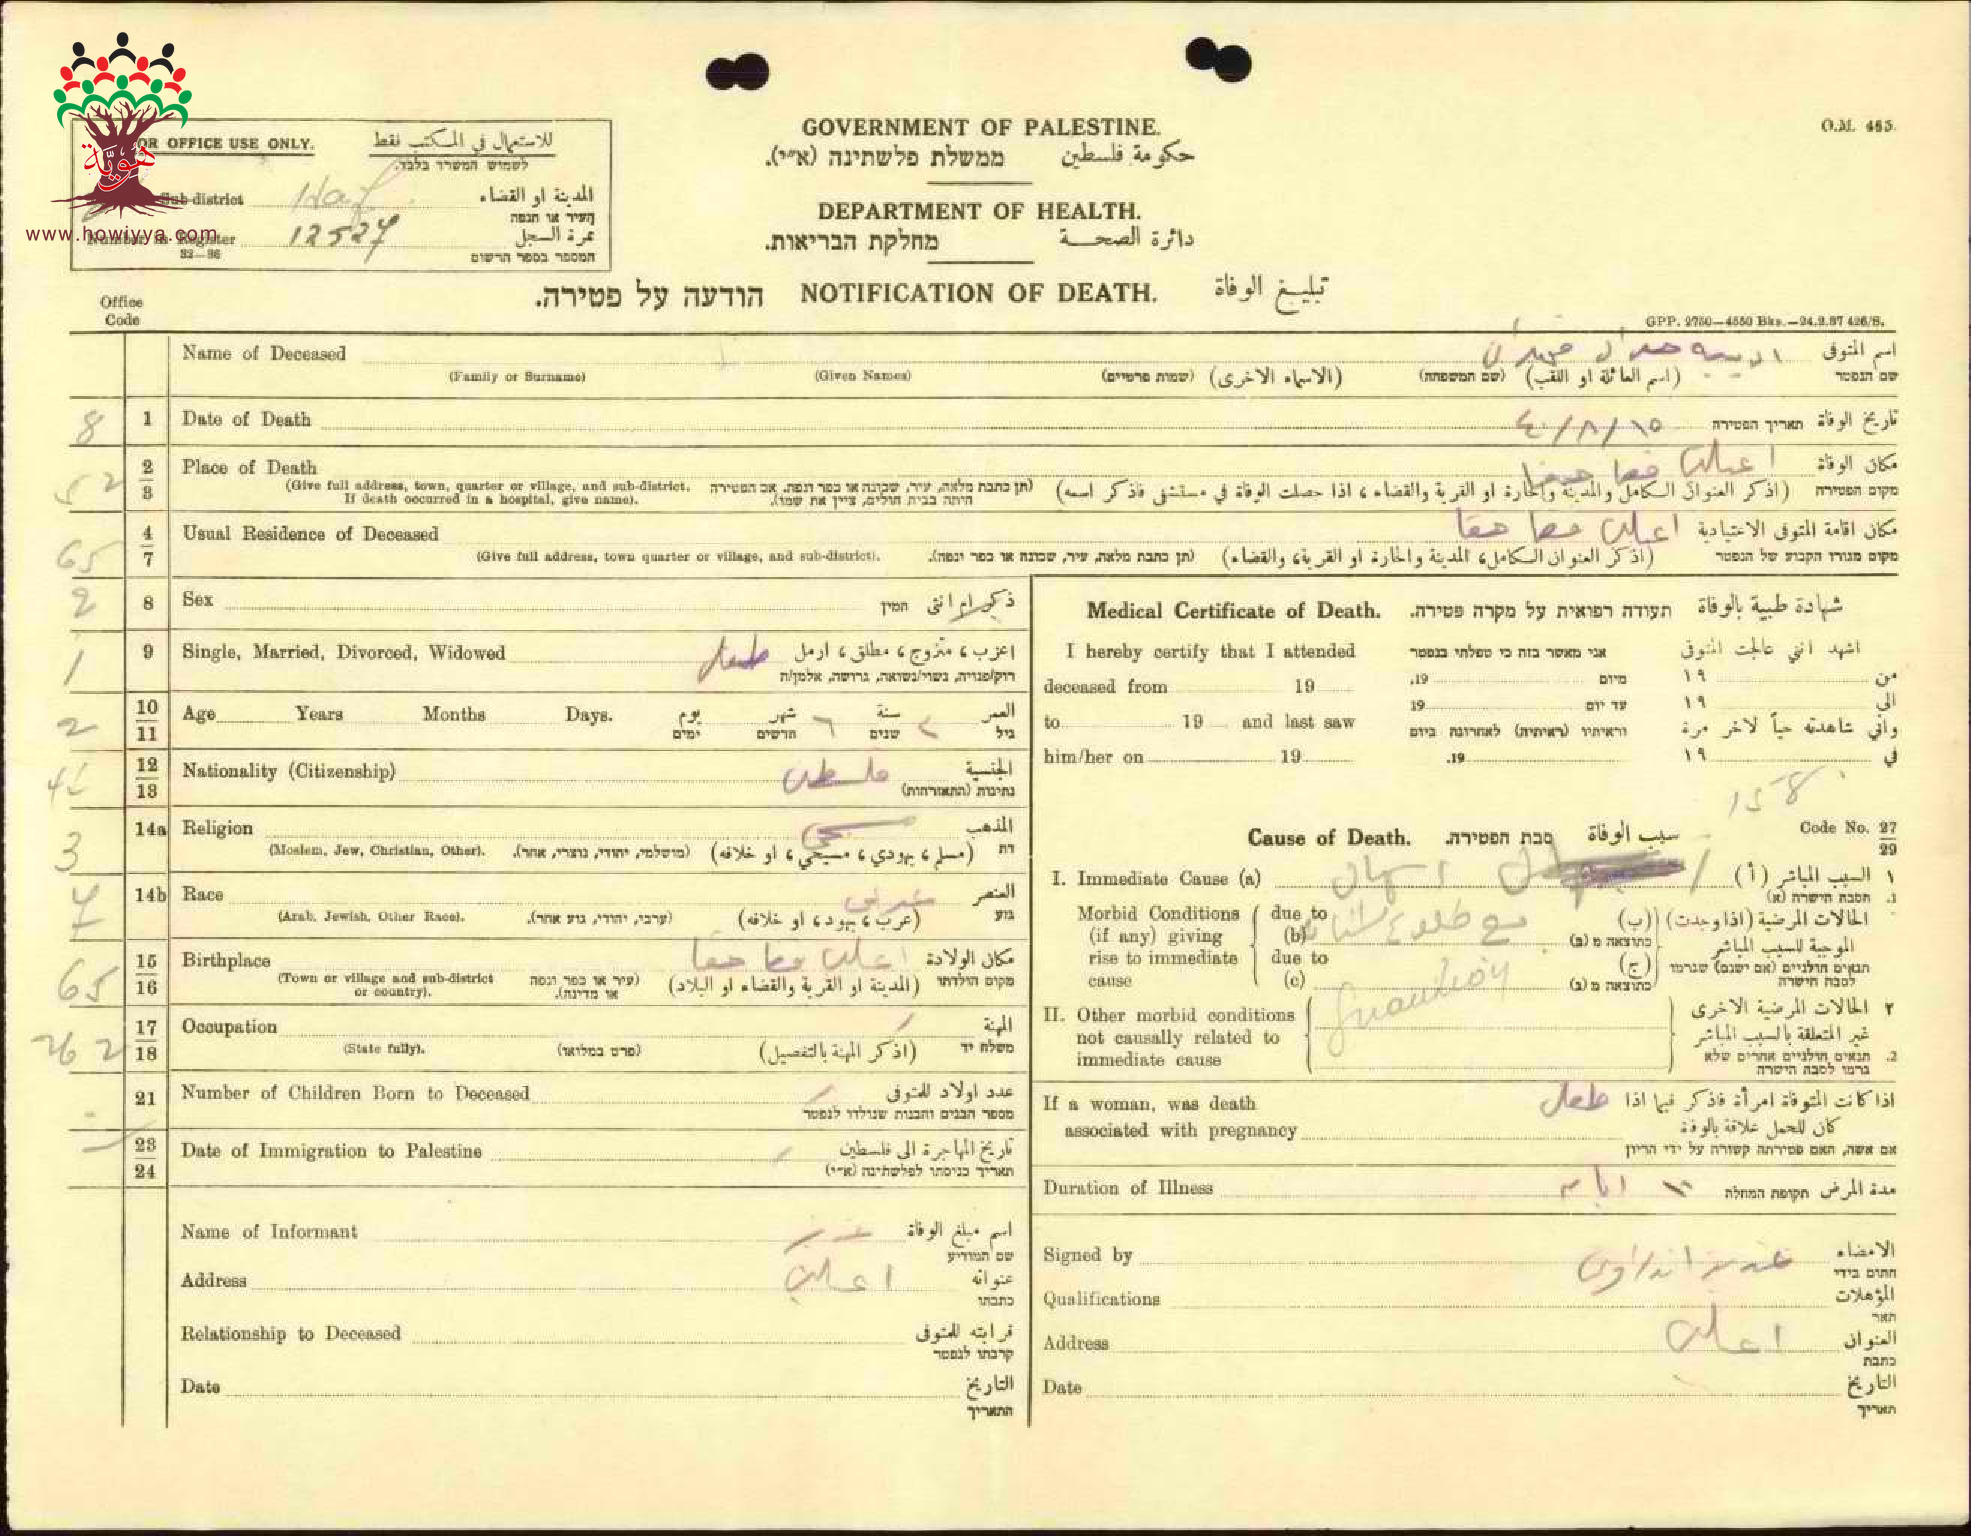 هوية
www.howiyya.com
FOR OFFICE USE ONLY. للاستعمال في المكتب فقط
לשמוש המשרד בלבד.
Sub-district المدينة او القضاء
העיר או הנפה
Number in Register 12527 نمرة السجل
32—36 המספר בספר הרשום
O.M. 465.
GOVERNMENT OF PALESTINE.
ممשלת פלשתינה (א״י). حكومة فلسطين
DEPARTMENT OF HEALTH.
מחלקת הבריאות. دائرة الصحة
הודעה על פטירה. NOTIFICATION OF DEATH. تبليغ الوفاة
Office Code
GPP. 2750—4550 Bks.—24.2.37 426/S.
Name of Deceased اسم المتوفى
(Family or Surname) (Given Names) (שמות פרטיים) (الاسماء الاخرى) (שם המשפחה) (اسم العائلة او اللقب) שם הנפטר
8 1 Date of Death ١٥/٨/٤٠ תאריך הפטירה تاريخ الوفاة
52 2/3 Place of Death اعبلين قضا حيفا مكان الوفاة
(Give full address, town, quarter or village, and sub-district. If death occurred in a hospital, give name). (תן כתבת מלאה, עיר, שכונה או כפר ונפה. אם הפטירה היתה בבית חולים, ציין את שמו). (اذكر العنوان الكامل والمدينة والحارة او القرية والقضاء، اذا حصلت الوفاة في مستشفى فاذكر اسمه) מקום הפטירה
65 4/7 Usual Residence of Deceased اعبلين قضا حيفا مكان اقامة المتوفى الاعتيادية
(Give full address, town quarter or village, and sub-district). (תן כתבת מלאה, עיר, שכונה או כפר ונפה). (اذكر العنوان الكامل، المدينة والحارة او القرية، والقضاء) מקום מגורו הקבוע של הנפטר
2 8 Sex המין ذكر ام انثى
1 9 Single, Married, Divorced, Widowed طفل اعزب، متزوج، مطلق، ارمل
רווק/פנויה, נשוי/נשואה, גרושה, אלמן/ה
2 10/11 Age Years Months Days. يوم شهر ٦ سنة العمر
ימים חדשים שנים גיל
12/13 Nationality (Citizenship) فلسطين الجنسية
נתינות (התאזרחות)
3 14a Religion مسيحي المذهب
(Moslem, Jew, Christian, Other). (מושלמי, יהודי, נוצרי, אחר). (مسلم، يهودي، مسيحي، او خلافه) דת
7 14b Race عربي العنصر
(Arab, Jewish, Other Race). (ערבי, יהודי, גזע אחר). (عرب، يهود، او خلافه) גזע
65 15/16 Birthplace اعبلين قضا حيفا مكان الولادة
(Town or village and sub-district or country). (עיר או כפר ונפה או מדינה). (المدينة او القرية والقضاء او البلاد) מקום הולדתו
262 17/18 Occupation المهنة
(State fully). (פרט במלואו) (اذكر المهنة بالتفصيل) משלח יד
21 Number of Children Born to Deceased عدد اولاد للمتوفى
מספר הבנים והבנות שנולדו לנפטר
23/24 Date of Immigration to Palestine تاريخ المهاجرة الى فلسطين
תאריך כניסתו לפלשתינה (א״י)
Name of Informant اسم مبلغ الوفاة
שם המודיע
Address اعبلين عنوانه
כתבתו
Relationship to Deceased قرابته للمتوفى
קרבתו לנפטר
Date التاريخ
התאריך
Medical Certificate of Death. תעודה רפואית על מקרה פטירה. شهادة طبية بالوفاة
I hereby certify that I attended אני מאשר בזה כי טפלתי בנפטר اشهد انني عالجت المتوفى
deceased from 19 מיום 19. من ١٩
to 19 and last saw עד יום 19 الى ١٩
וראיתיו (ראיתיה) לאחרונה ביום واني شاهدته حياً لآخر مرة
him/her on 19 19. في ١٩
158
Cause of Death. סבת הפטירה. سبب الوفاة Code No. 27/29
I. Immediate Cause (a) اسهال ١ السبب المباشر (أ)
1. הסבה הישרה (א)
Morbid Conditions (if any) giving rise to immediate cause
due to (b) مع طلوع اسنانه כתוצאה מ (ב) (ب) الحالات المرضية (اذا وجدت) الموجبة للسبب المباشر
due to (c) כתוצאה מ (ג) (ج) תנאים חולניים (אם ישנם) שגרמו לסבה הישרה
II. Other morbid conditions not causally related to immediate cause
٢ الحالات المرضية الاخرى غير المتعلقة بالسبب المباشر
2. תנאים חולניים אחרים שלא גרמו לסבה הישרה
If a woman, was death associated with pregnancy طفل اذا كانت المتوفاة امرأة فاذكر فيما اذا كان للحمل علاقة بالوفاة
אם אשה, האם פטירתה קשורה על ידי הריון
Duration of Illness ١٠ ايام תקופת המחלה مدة المرض
Signed by الامضاء
חתום בידי
Qualifications المؤهلات
תאר
Address اعبلين العنوان
כתבת
Date التاريخ
תאריך